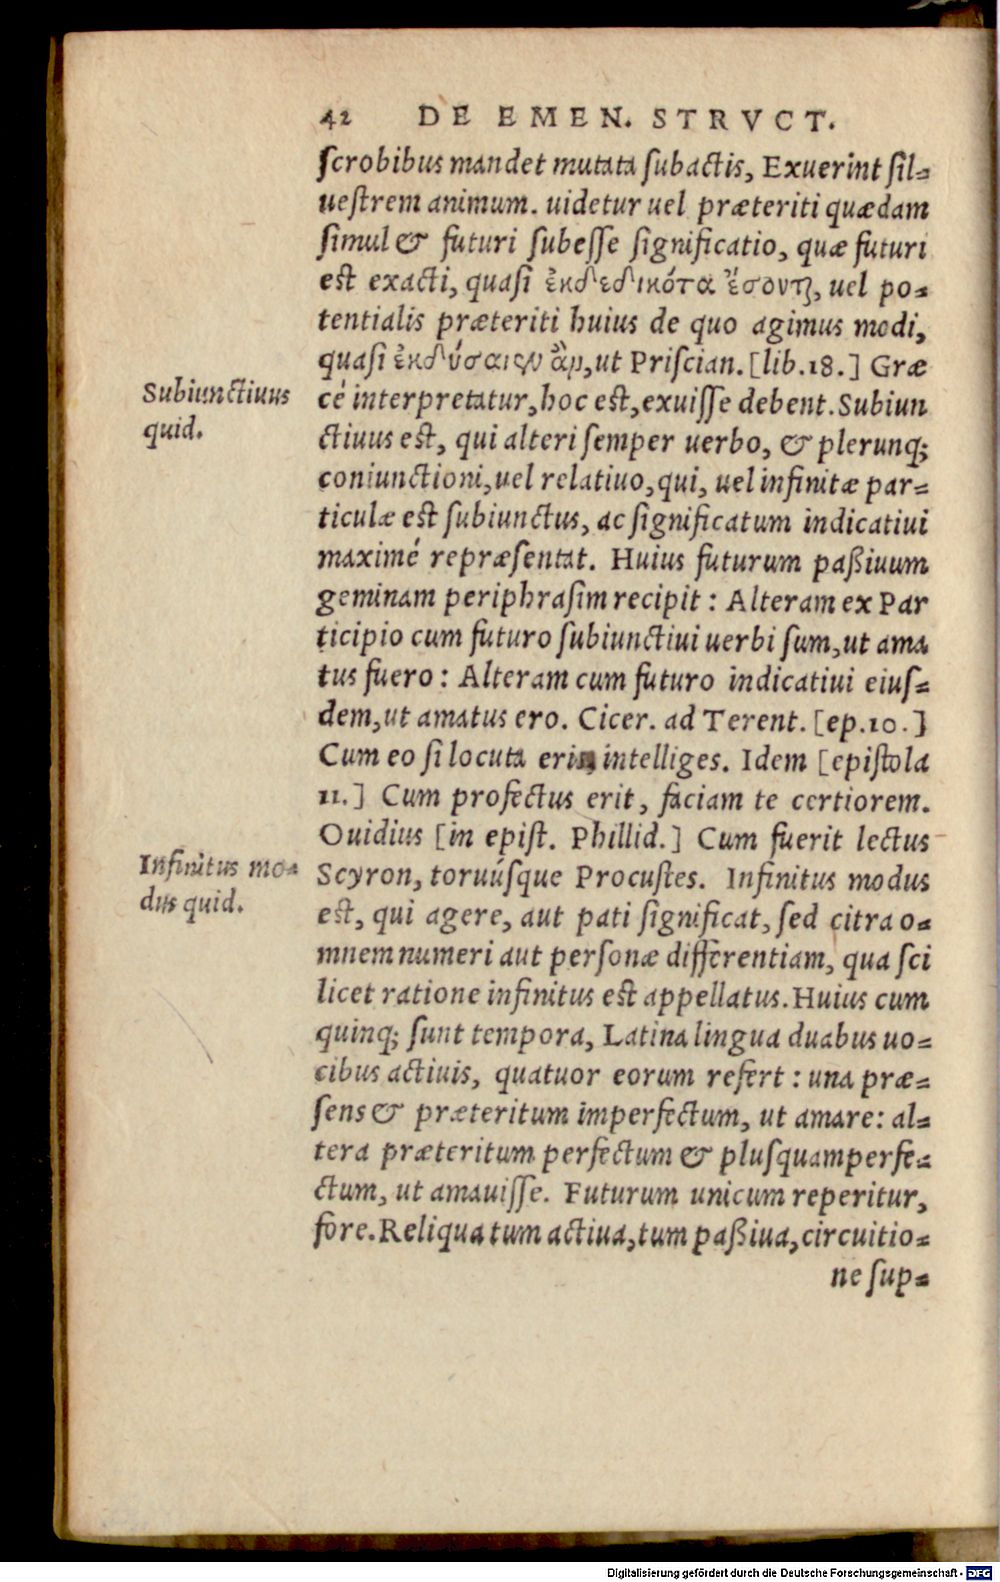 42 DE EMEN. STRVCT.
ſcrobibus mandet mutata ſubactis, Exuerint ſil-
ueſtrem animum. uidetur uel præteriti quædam
ſimul & futuri ſubeſſe ſignificatio, quæ futuri
est exacti, quaſi ἐκδεδικότα ἔσονται, uel po-
tentialis præteriti huius de quo agimus modi,
quaſi ἐκδύσαιεν ἂν, ut Priſcian. [lib.18.] Græ
cé interpretatur, hoc est, exuiſſe debent. Subiun
ctiuus est, qui alteri ſemper uerbo, & plerunq;
coniunctioni, uel relatiuo, qui, uel infinitæ par-
ticulæ est ſubiunctus, ac ſignificatum indicatiui
maximé repræſentat. Huius futurum paßiuum
geminam periphraſim recipit: Alteram ex Par
ticipio cum futuro ſubiunctiui uerbi ſum, ut ama
tus fuero: Alteram cum futuro indicatiui eiuſ-
dem, ut amatus ero. Cicer. ad Terent. [ep.10.]
Cum eo ſi locuta eris, intelliges. Idem [epiſtola
11.] Cum profectus erit, faciam te certiorem.
Ouidius [in epiſt. Phillid.] Cum fuerit lectus
Scyron, toruúſque Procuſtes. Infinitus modus
est, qui agere, aut pati ſignificat, ſed citra o-
mnem numeri aut perſonæ differentiam, qua ſci
licet ratione infinitus est appellatus. Huius cum
quinq; ſunt tempora, Latina lingua duabus uo-
cibus actiuis, quatuor eorum refert: una præ-
ſens & præteritum imperfectum, ut amare: al-
tera præteritum perfectum & pluſquamperfe-
ctum, ut amauiſſe. Futurum unicum reperitur,
fore. Reliqua tum actiua, tum paßiua, circuitio-
ne ſup-
Subiunctiuus
quid.
Infinitus mo-
dus quid.
Digitalisierung gefördert durch die Deutsche Forschungsgemeinschaft - DFG